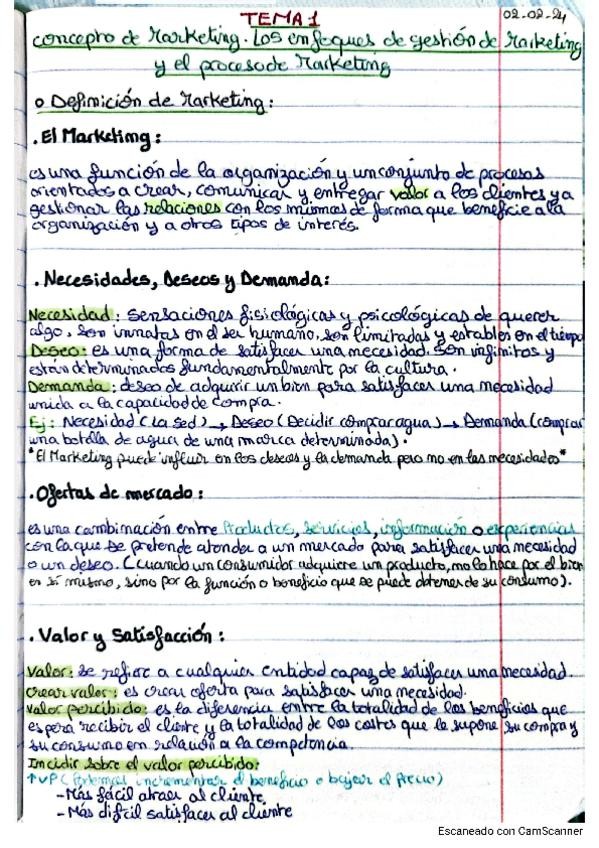 TEMA 1
02-02-24
concepto de Marketing. Los enfoques de gestión de Marketing
y el proceso de Marketing
o Definición de Marketing:
. El Marketing:
es una función de la organización y un conjunto de procesos
orientados a crear, comunicar y entregar valor a los clientes y a
gestionar las relaciones con los mismos de forma que beneficie a la
organización y a otros tipos de interés.
. Necesidades, Deseos y Demanda:
Necesidad: sensaciones fisiológicas y psicológicas de querer
algo, son innatas en el ser humano, son limitadas y estables en el tiempo
Deseo: es una forma de satisfacer una necesidad. Son infinitos y
están determinados fundamentalmente por la cultura.
Demanda: deseo de adquirir un bien para satisfacer una necesidad
unida a la capacidad de compra.
Ej: Necesidad (La sed) → Deseo (Decidir comprar agua) → Demanda (comprar
una botella de agua de una marca determinada).
*El Marketing puede influir en los deseos y la demanda pero no en las necesidades*
. Ofertas de mercado:
es una combinación entre Productos, servicios, información o experiencias
con la que se pretende atender a un mercado para satisfacer una necesidad
o un deseo. (cuando un consumidor adquiere un producto, no lo hace por el bien
en sí mismo, sino por la función o beneficio que se puede obtener de su consumo).
. Valor y Satisfacción:
Valor: se refiere a cualquier entidad capaz de satisfacer una necesidad.
Crear valor: es crear oferta para satisfacer una necesidad.
Valor percibido: es la diferencia entre la totalidad de los beneficios que
espera recibir el cliente y la totalidad de los costes que le supone su compra y
su consumo en relación a la competencia.
Incidir sobre el valor percibido:
↑VP (Podemos incrementar el beneficio o bajar el precio)
- Más fácil atraer al cliente
- Más difícil satisfacer al cliente
Escaneado con CamScanner